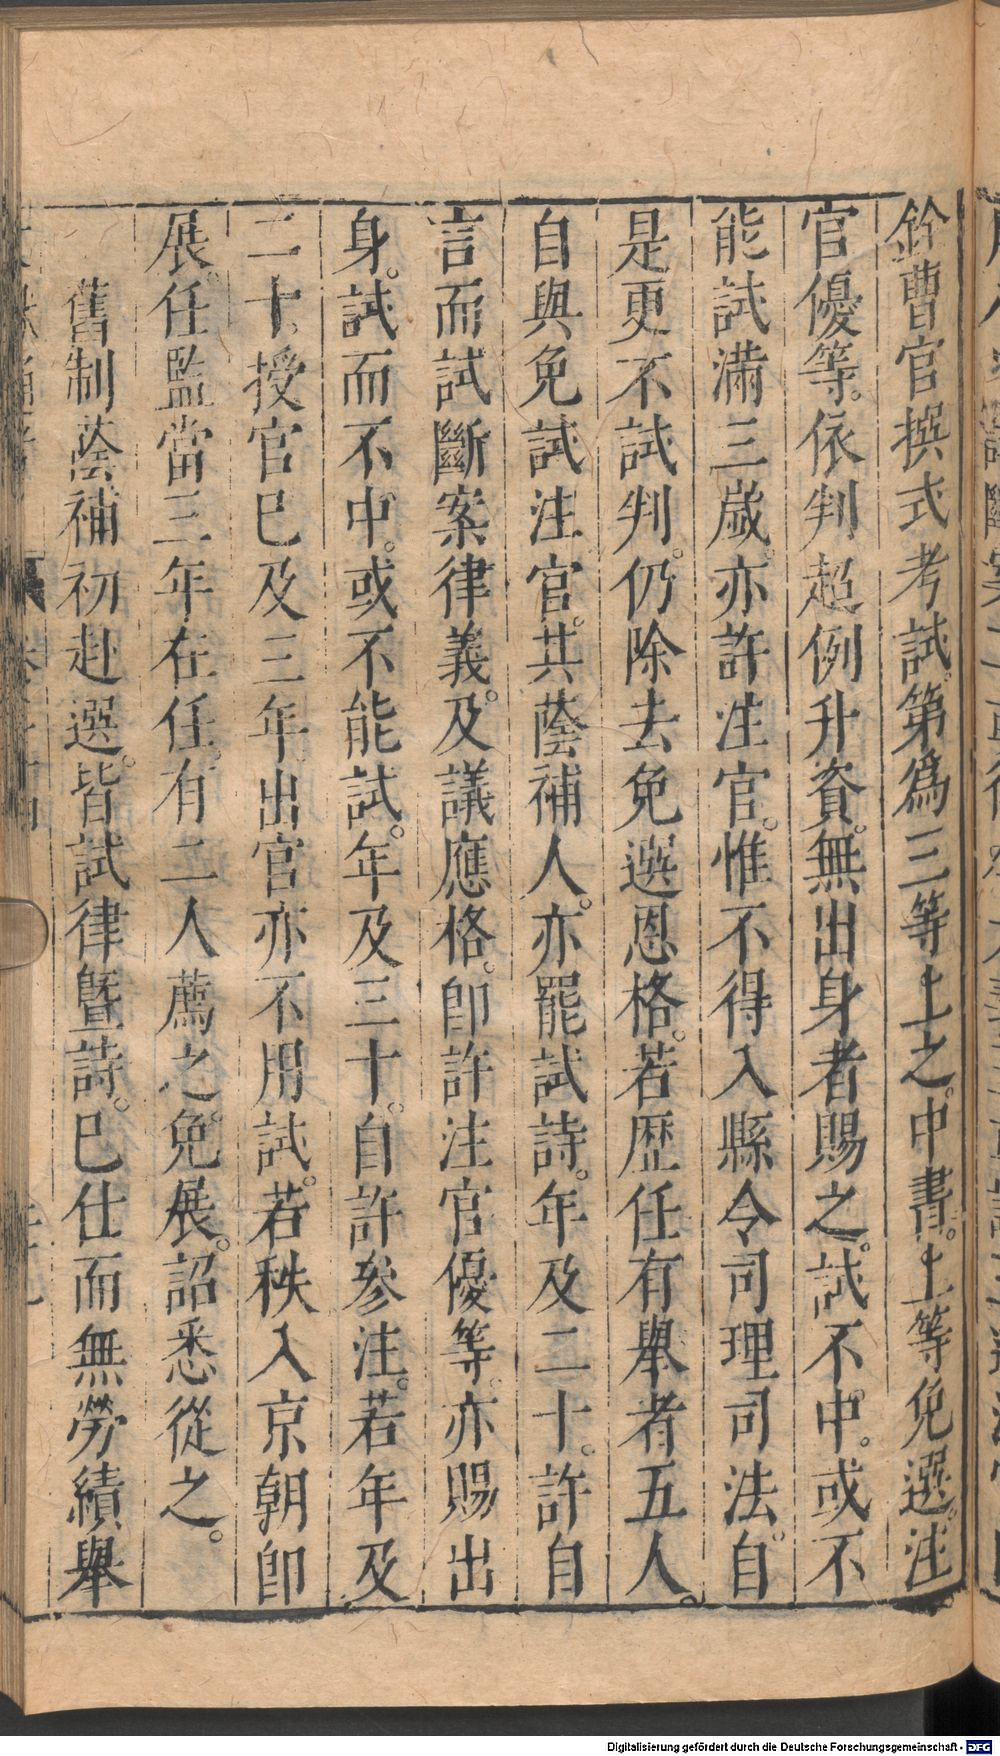 銓曹官撰式考試。第爲三等上之。中書。上等免選。注
官優等。依判超例升資。無出身者賜之。試不中。或不
能試滿三歲。亦許注官。惟不得入縣令司理司法。自
是更不試判。仍除去免選恩格。若歴任有舉者五人。
自與免試注官。其蔭補人。亦罷試詩。年及二十。許自
言而試斷案律義。及議應格。卽許注官優等。亦賜出
身。試而不中。或不能試。年及三十。自許參注。若年及
二十授官已及三年出官亦不用試。若秩入京朝卽
展。任監當三年在任。有二人薦之。免展。詔悉從之。
舊制蔭補初赴選。皆試律暨詩。已仕而無勞績舉
Digitalisierung gefördert durch die Deutsche Forschungsgemeinschaft - DFG